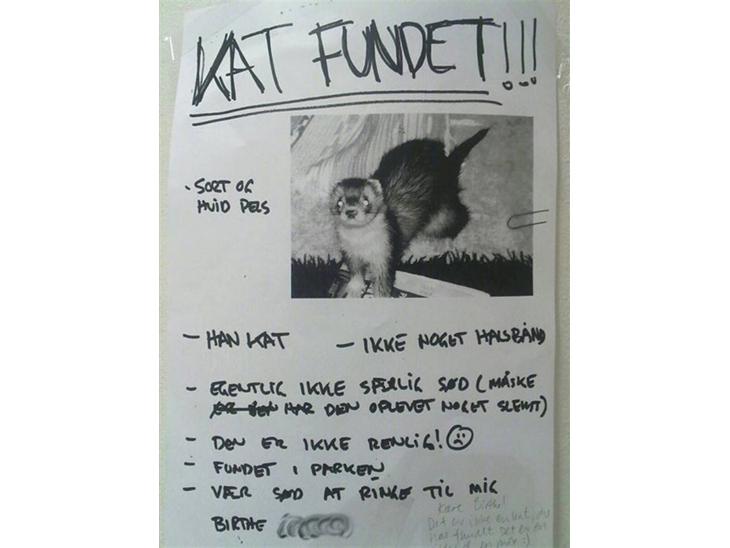 KAT FUNDET!!!
· SORT OG
HVID PELS
- HAN KAT
- IKKE NOGET HALSBÅND
- EGENTLIG IKKE SPECIELIG SØD (MÅSKE
HAR DEN OPLEVET NOGET SLEMT)
- DEN ER IKKE RENLIG!
- FUNDET I PARKEN
- VÆR SØD AT RINGE TIL MIG
BIRTHE
Kære Birthe!
Det er ikke en kat, du
har fundet. Det er en